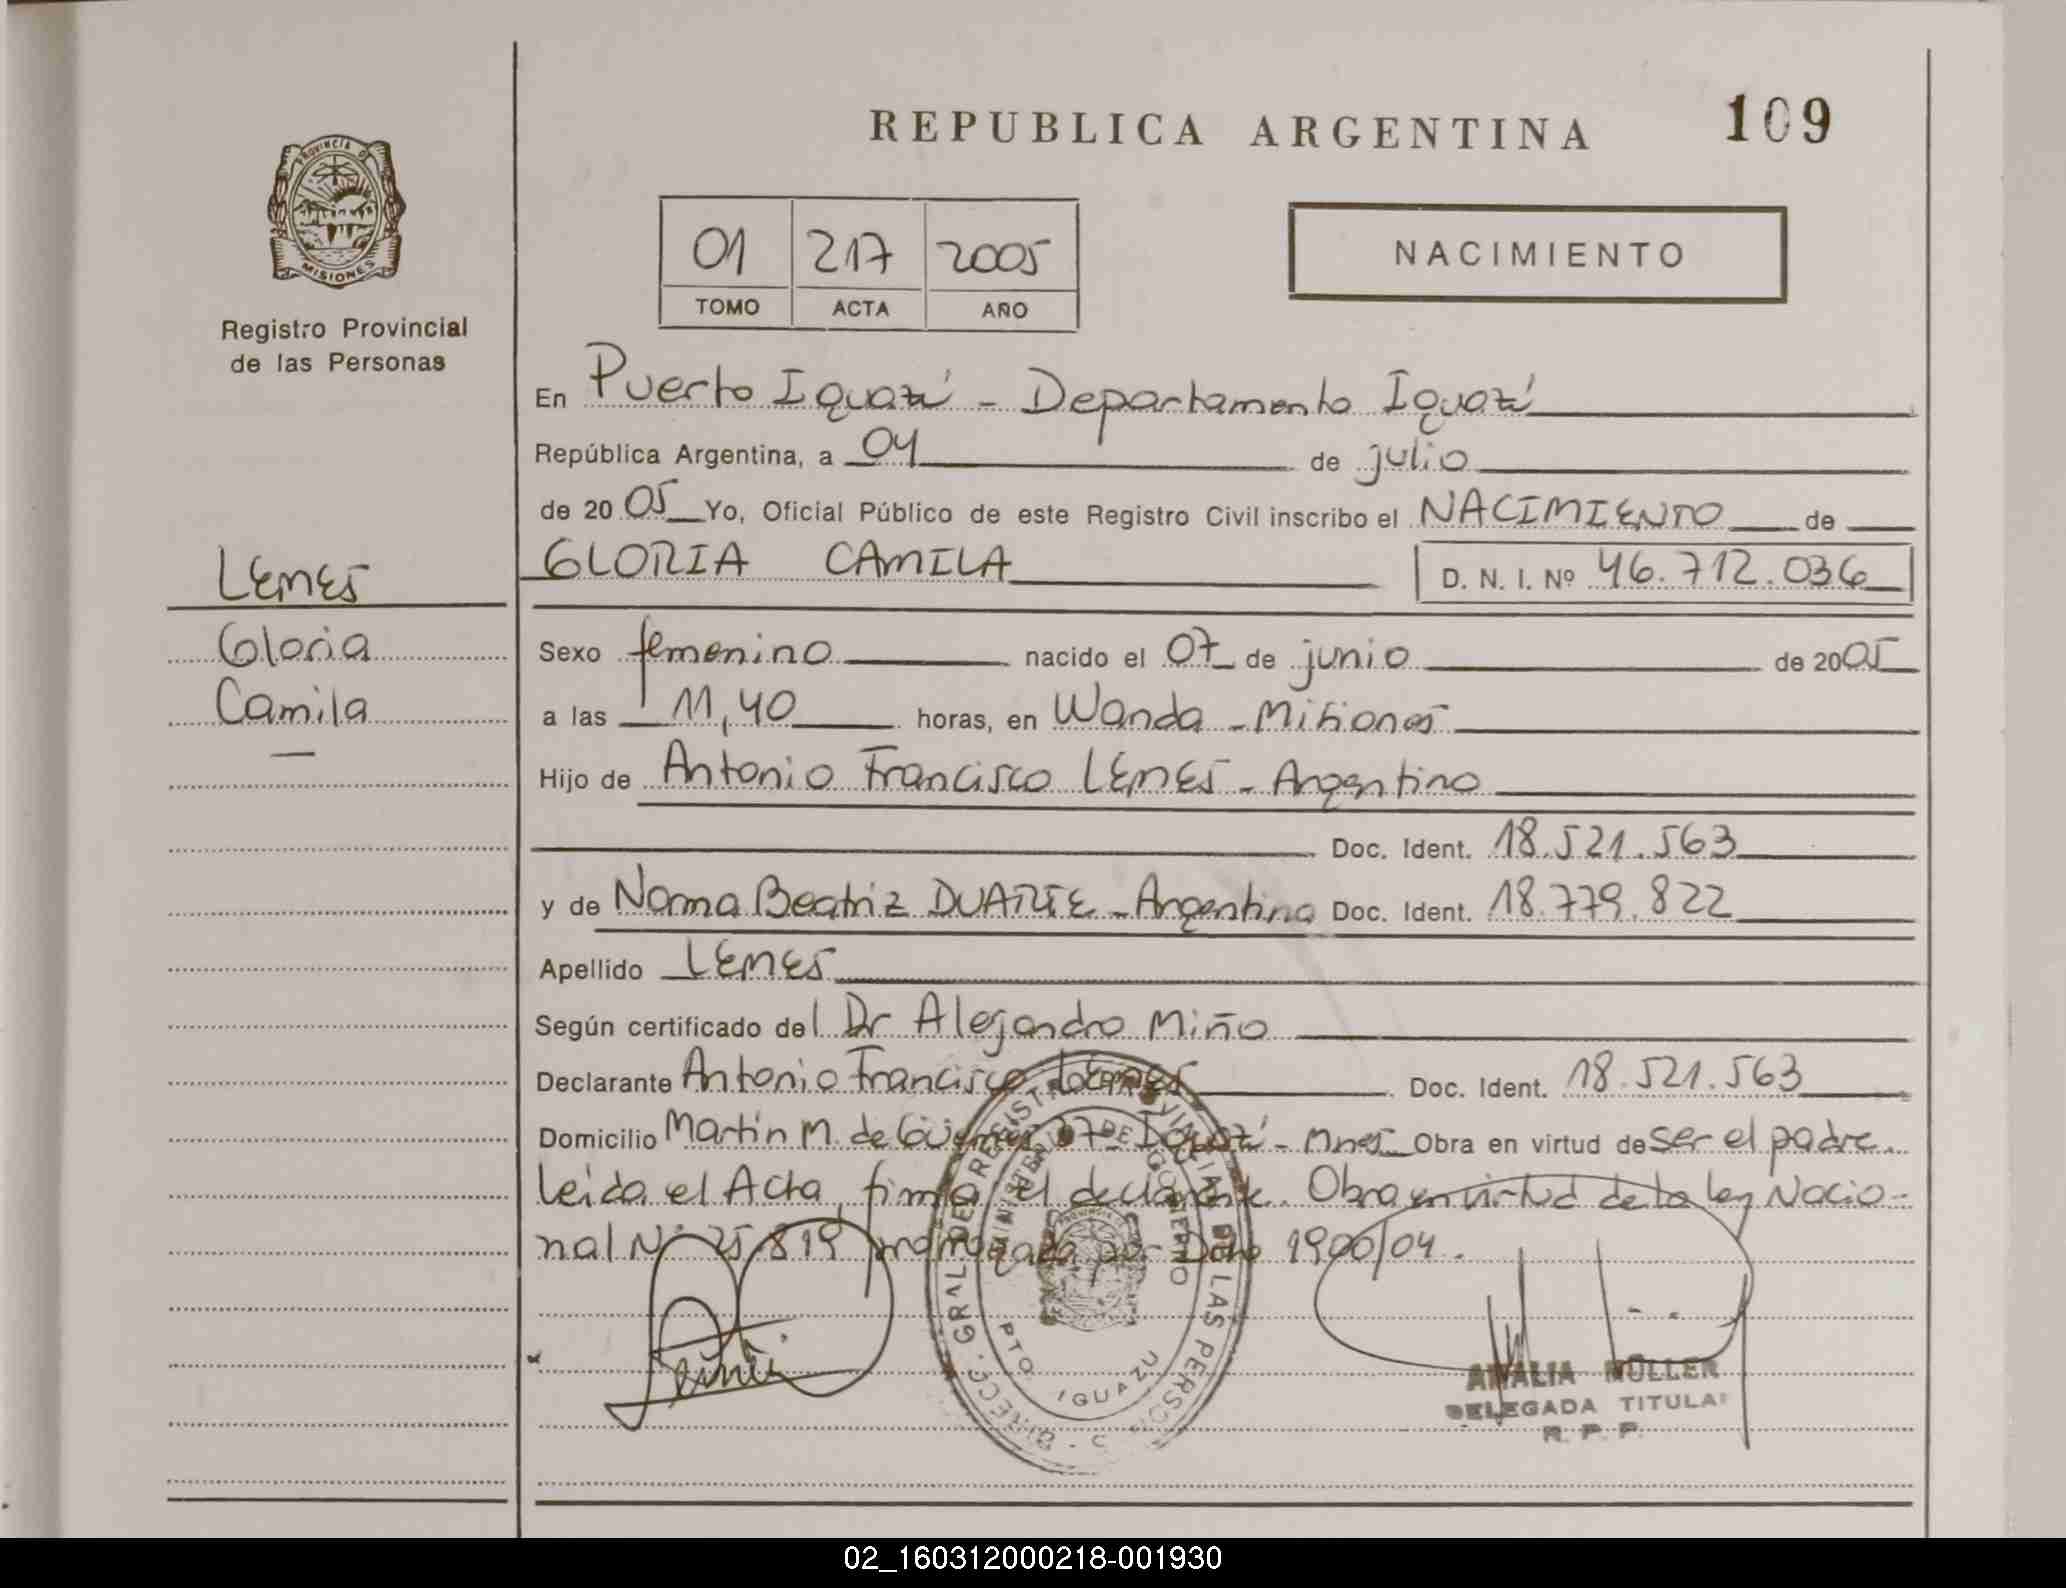 REPUBLICA ARGENTINA
109
PROVINCIA DE
MISIONES
Registro Provincial
de las Personas
01 217 2005
TOMO ACTA AÑO
NACIMIENTO
En Puerto Iguazú - Departamento Iguazú
República Argentina, a 04 de julio
de 2005 Yo, Oficial Público de este Registro Civil inscribo el NACIMIENTO de
GLORIA CAMILA D. N. I. Nº 46.712.036
LEMES
Gloria
Camila
Sexo femenino nacido el 07 de junio de 2005
a las 11,40 horas, en Wanda - Misiones
Hijo de Antonio Francisco LEMES - Argentino
Doc. Ident. 18.521.563
y de Norma Beatriz DUARTE - Argentina Doc. Ident. 18.779.822
Apellido LEMES
Según certificado del Dr Alejandro Miño
Declarante Antonio Francisco Lemes Doc. Ident. 18.521.563
Domicilio Martín M. de Güemes 37 - Iguazú - Mnes Obra en virtud de ser el padre
leida el Acta, firma el declarante. Obra en virtud de la ley Nacio-
nal Nº 25.819 promulgada por Dcto 1900/04.
DIRECC. GRAL DEL REGISTRO PROVINCIAL DE LAS PERSONAS
MINISTERIO DE GOBIERNO
PTO IGUAZU
AMALIA MULLER
DELEGADA TITULAR
R. P. P.
02_160312000218-001930